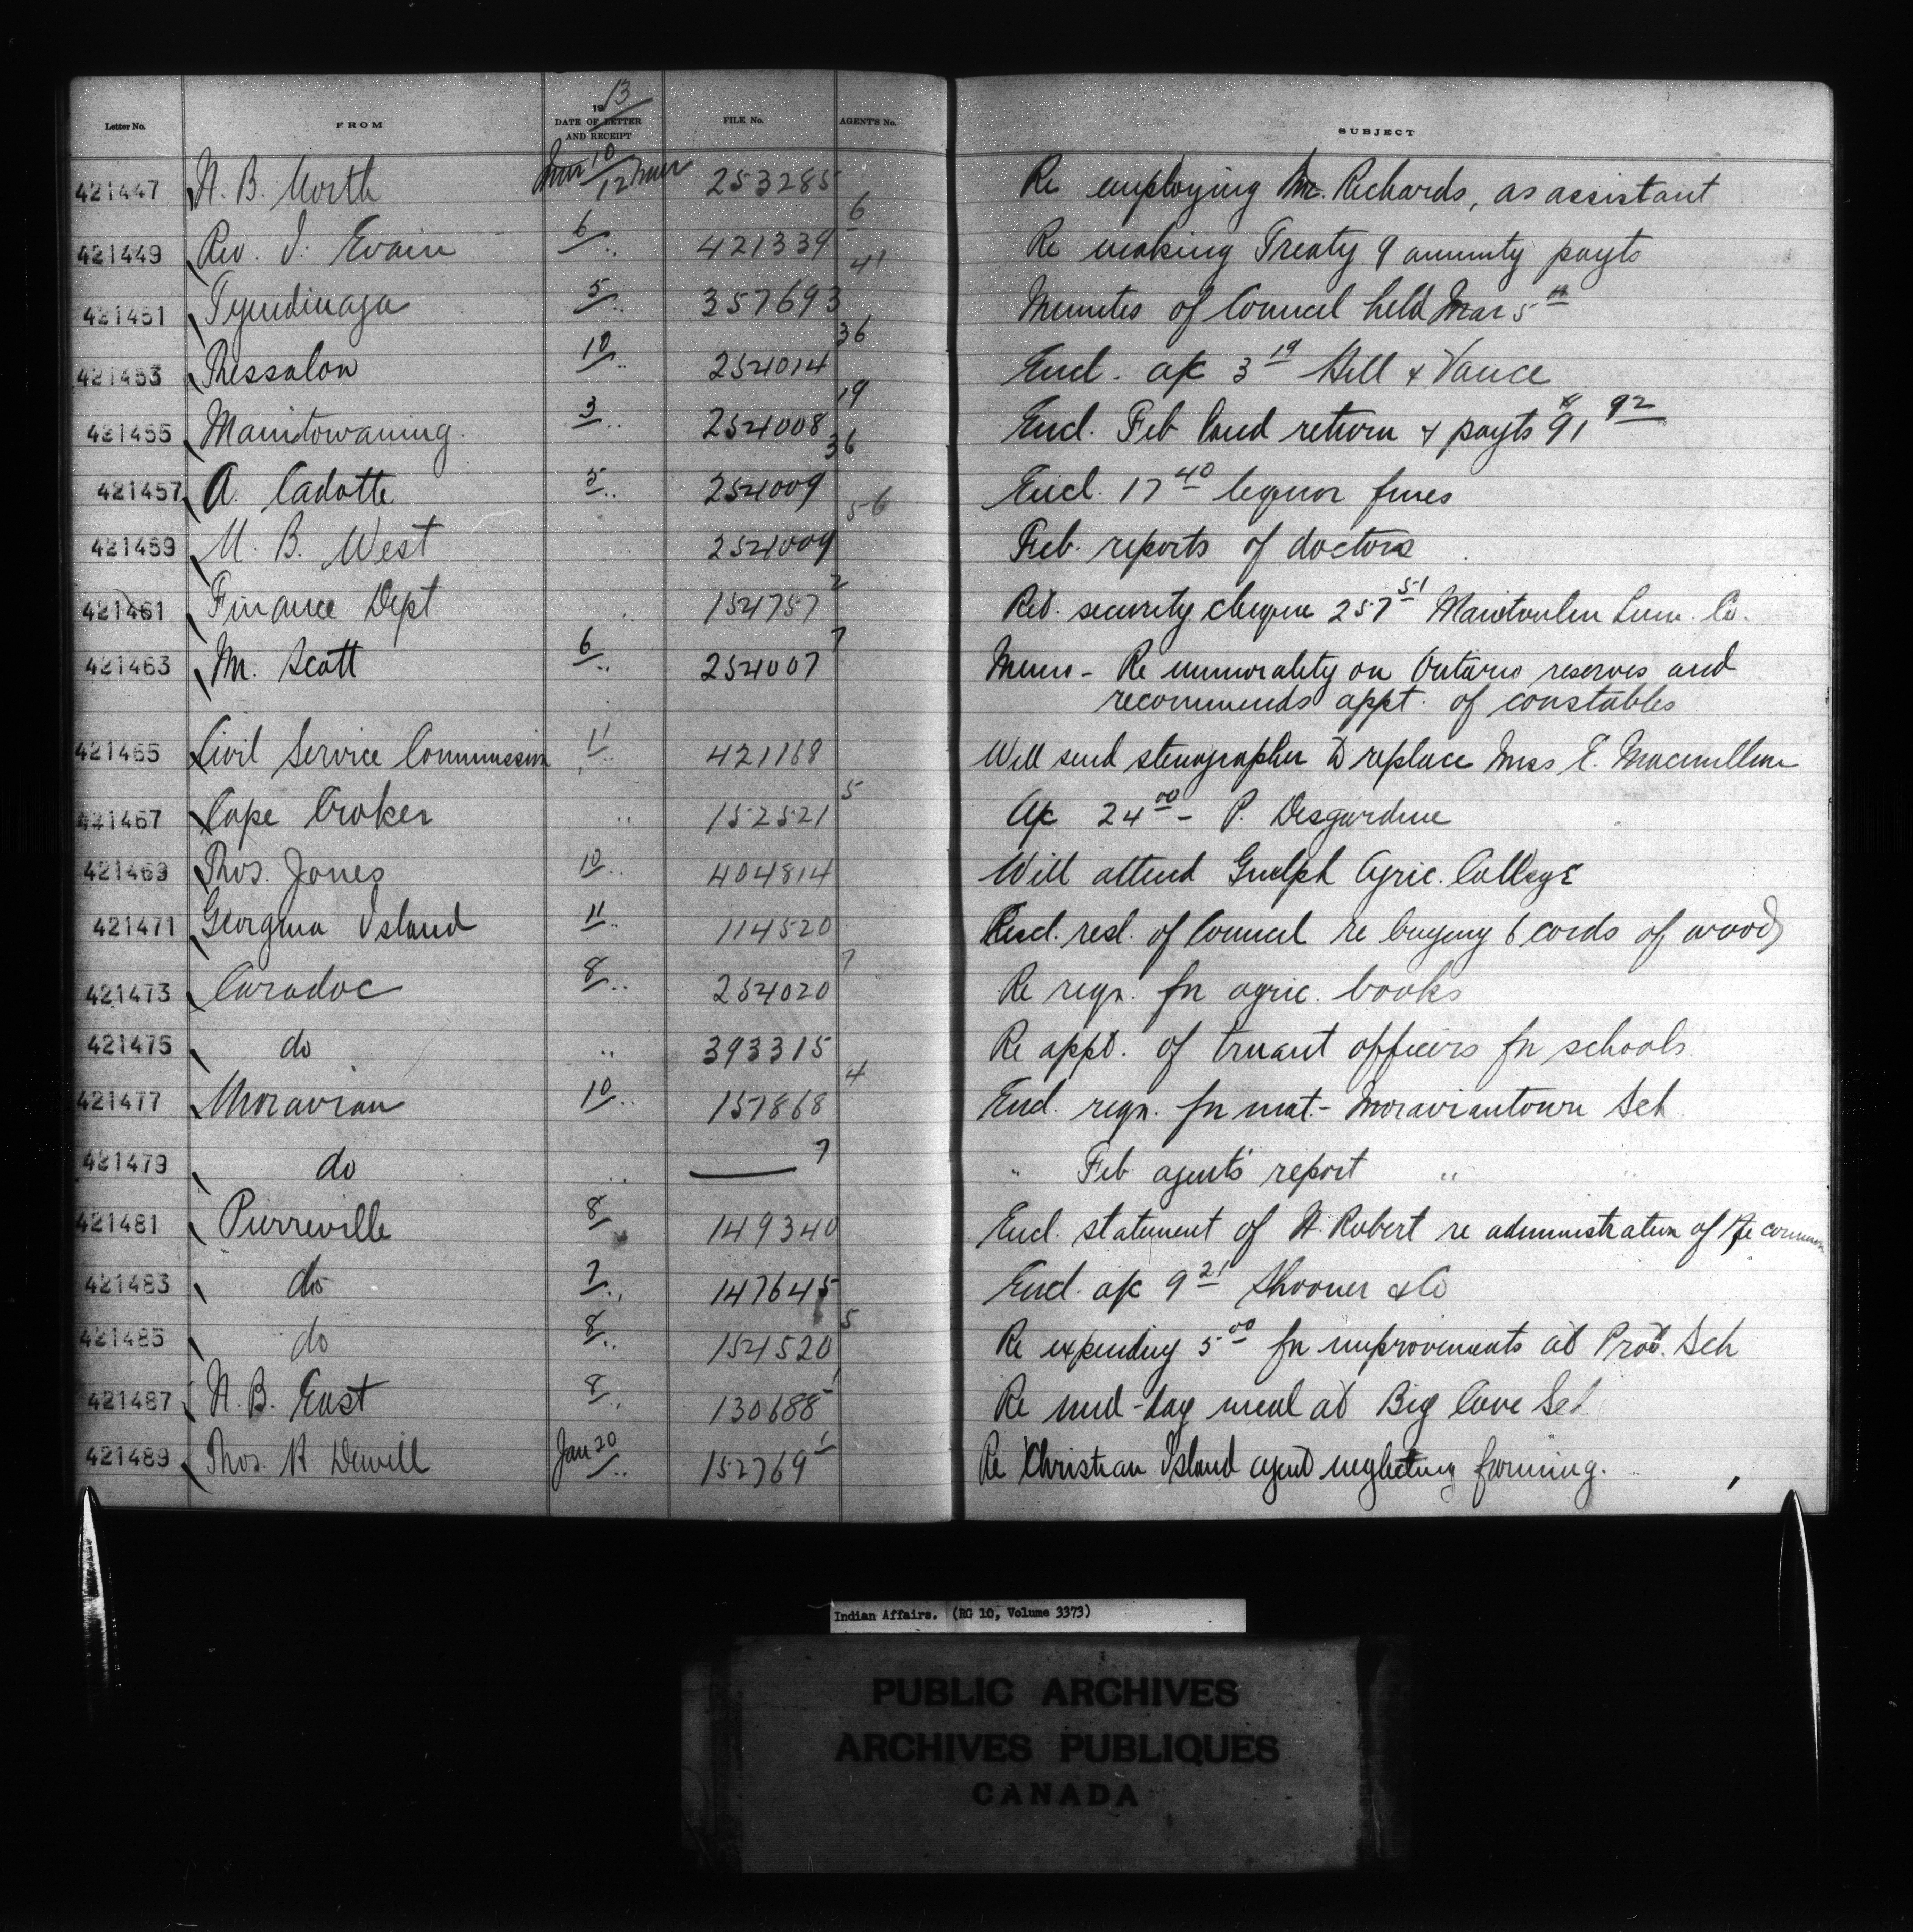 Letter No. FROM 1913 DATE OF LETTER AND RECEIPT FILE No. AGENT'S No. SUBJECT
421447 N. B. North Mar 10/12 Mar 253285 Re employing Mr. Richards, as assistant
421449 Rev. J. Evain 6/.. 421339 6 Re making Treaty 9 annuity payts
421451 Tyendinaga 5/.. 357693 41 Minutes of Council held Mar 5th
421453 Thessalon 10/.. 254014 36 Encl. a/c 3 19 Hill & Vance
421455 Manitowaning. 3/.. 254008 19 Encl. Feb land return & payts $91 92
421457 A. Cadotte 5/.. 254009 36 Encl. 17 40 liquor fines
421459 N. B. West .. 254009 56 Feb. reports of doctors
421461 Finance Dept .. 154757 2 Ret. security cheque 257 51 Manitoulin Lum. Co.
421463 Mr. Scott 6/.. 254007 7 Memo - Re immorality on Ontario reserves and
recommends appt. of constables
421465 Civil Service Commission 11/.. 421168 Will send stenographer to replace Miss E. Macmillan
421467 Cape Croker .. 152521 5 A/c 24 00 - P. Desjardine
421469 Thos. Jones 10/.. 404814 Will attend Guelph Agric. College
421471 Georgina Island 11/.. 114520 Encl. resl. of Council re buying 6 cords of wood
421473 Caradoc 8/.. 254020 7 Re reqn. for agric. books
421475 do .. 393315 Re appt. of truant officers for schools
421477 Moravian 10/.. 157868 4 Encl. reqn. for mat - Moraviantown Sch
421479 do .. — 7 " Feb agent's report "
421481 Pierreville 8/ 149340 Encl. statement of H. Robert re administration of Ste common
421483 do 7/.. 147645 Encl. a/c 9 21 Shooner & Co
421485 do 8/.. 154520 5 Re expending 5 00 for improvements at Prot. Sch
421487 N. B. East 8/.. 130688 1 Re mid-day meal at Big Cove Sch
421489 Thos. H Jan 20/.. 152769 1 Re Christian Island agent neglecting farming.
Indian Affairs. (RG 10, Volume 3373)
PUBLIC ARCHIVES
ARCHIVES PUBLIQUES
CANADA